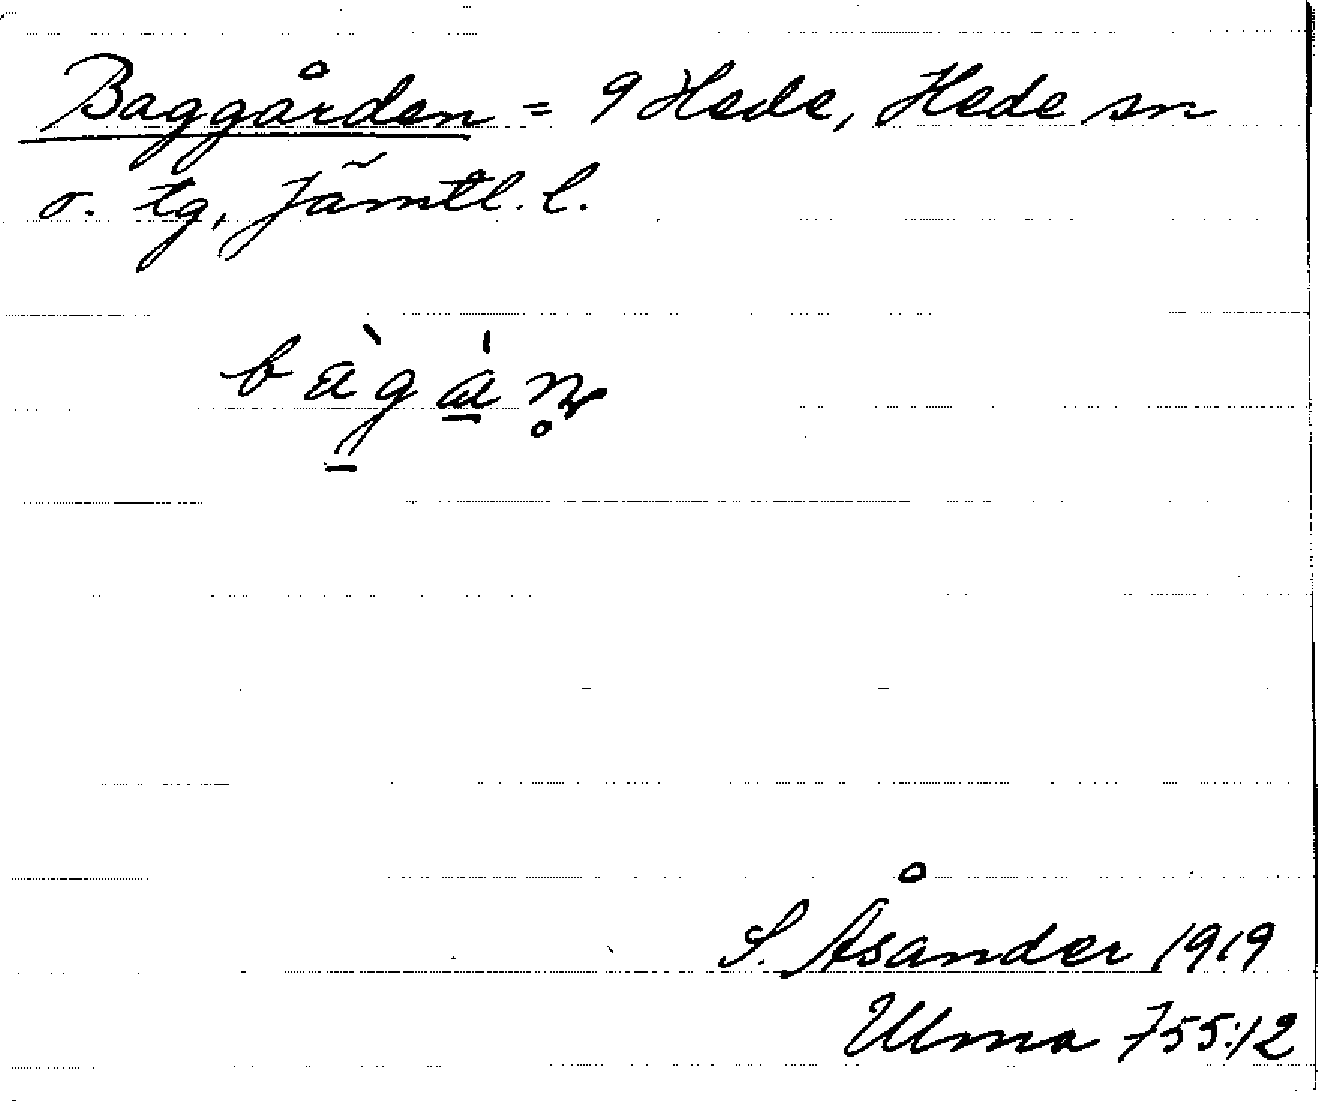 Baggården = 9 Hede, Hede sn
o. tg, Jämtl. l.
bàg̱a̱̍n̥
S. Åsander 1919
Ulma 755:12